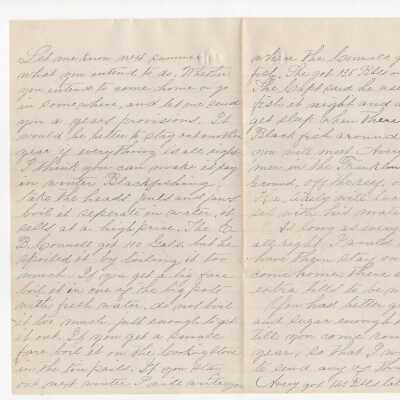 Let me know next summer
what you intend to do, Whether
you intend to come home or go
in somewhere, and let me send
you a years provisions. It
would be better to stay out another
year if everything is all right
I think you can make it pay
in winter Blackfishing.
take the heads junk and jaws
boil it seperate in water, it
sells at a high price. The C
B. Connell got 110 Gals, but he
spoiled it by boiling it too
much. If you get a big fare
boil it in one of the big pots
with fresh water, do not boil
it too much, just enough to get
it out. If you get a small
fare boil it on the cooking stove
in the tin pails. If you stay
out next winter I will write you
where the Connell g
fish, She got 125 Bbls o
The Capt said he use
fish it night and d
get sleep when there
Black fish around
you will meet Avery
men on the Franklin
around, off the sey, o
He, likely will
out with his mate
As long as every
all right I
have them stay on
come home, there
extra bills to be
You had better g
and sugar enough
till you come
year, so that I w
to send any
Avery got 145 Bbls